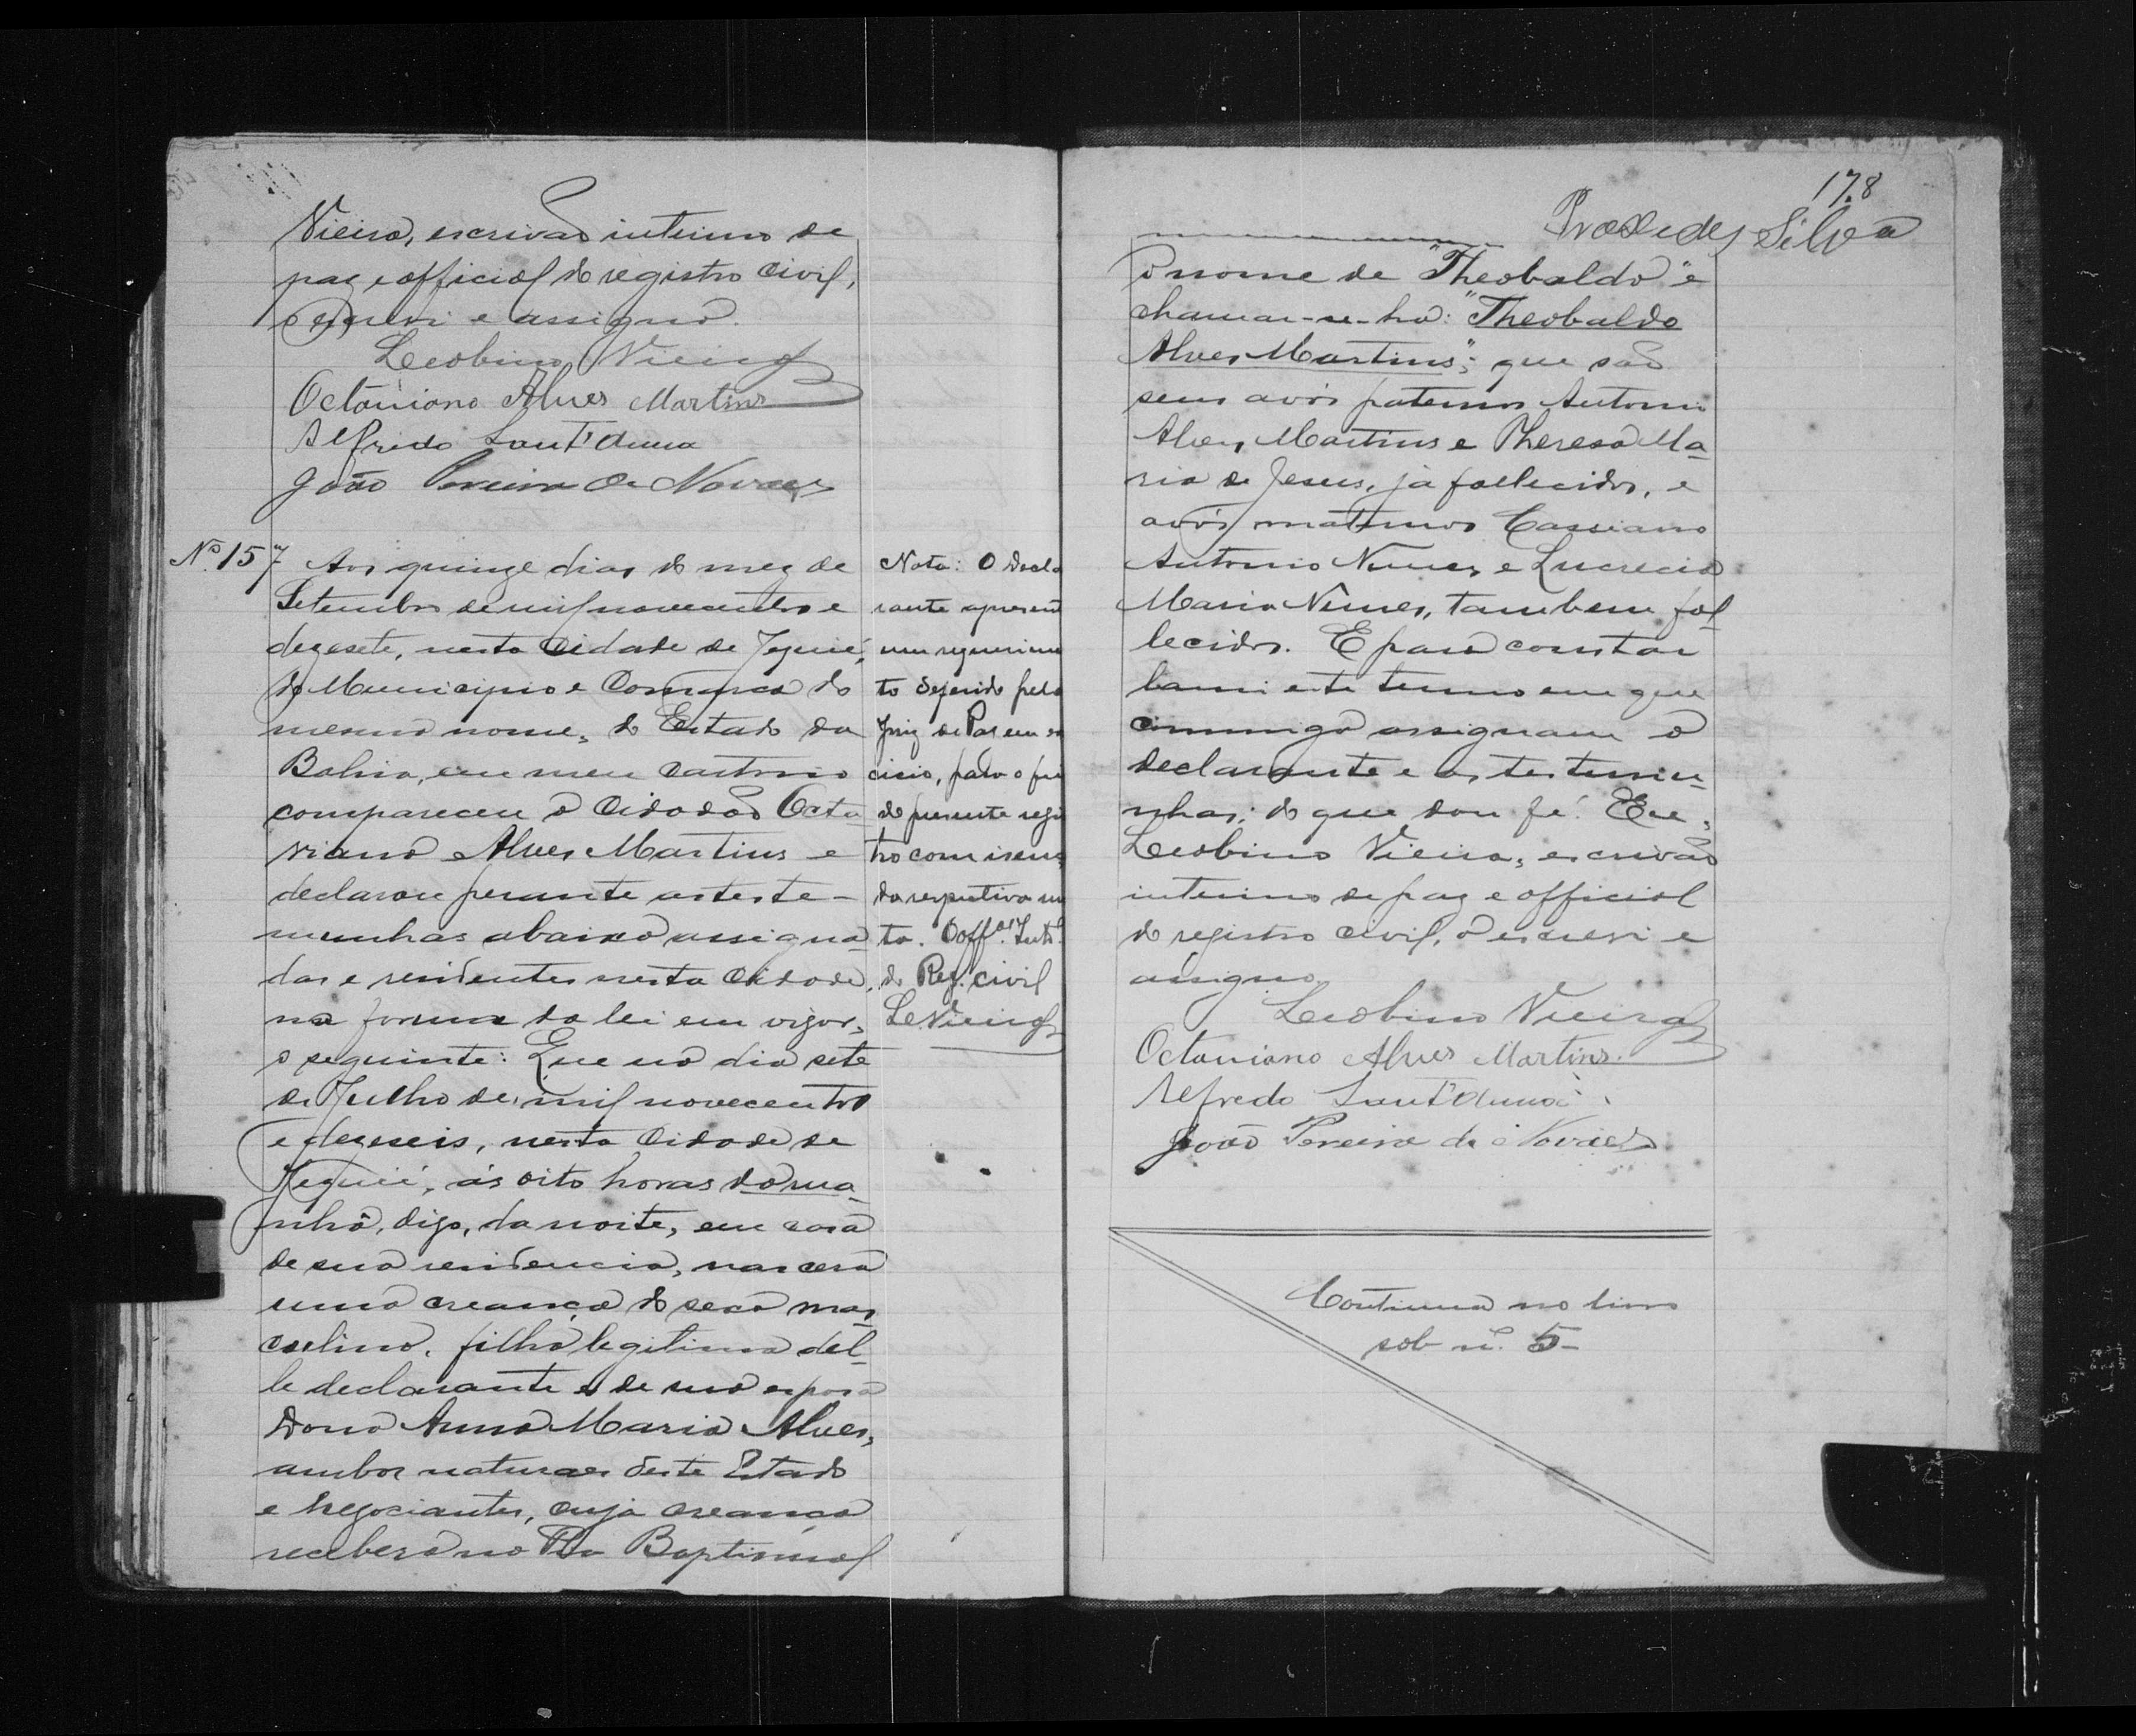 Vieira, escrivão interino de
paz e official do registro civil,
o escrevi e assigno.
Leobino Vieira
Octaviano Alves Martins
Alfredo Sant'Anna
João Pereira de Novaes
Nº 157 Aos quinze dias do mez de
Setembro de mil novecentos e
dezesete, nesta Cidade de Jequié,
do Municipio e Comarca do
mesmo nome, do Estado da
Bahia, em meu cartorio
compareceu o Cidadão Octa-
viano Alves Martins e
declarou perante as teste-
munhas abaixo assigna-
das e residentes nesta Cidade,
na forma da lei em vigor,
o seguinte: Que no dia sete
de Julho de mil novecentos
e dezeseis, nesta Cidade de
Jequié, ás oito horas da ma-
nhã, digo, da noite, em casa
de sua residencia, nascera
uma creança do sexo mas-
culino, filho legitimo del-
le declarante e de sua esposa
Dona Anna Maria Alves,
ambos naturaes deste Estado
e negociantes, cuja creança
receberá na Pia Baptismal
Nota: O decla
rante apresent
um requerimen
to deferido pelo
Juiz de Paz em ex
cicio, para o fim
do presente regis
tro com isenç
da respectiva mul
ta. O offal. Intº
do Reg. civil
L. Vieira
178
Silva
o nome de "Theobaldo" e
chamar-se-ha: "Theobaldo
Alves Martins"; que são
seus avós paternos Antonio
Alves Martins e Thereza Ma-
ria de Jesus, já fallecidos, e
avós maternos Cassiano
Antonio Nunes e Lucrecia
Maria Nunes, tambem fal-
lecidos. E para constar
lavrei este termo em que
commigo assignam o
declarante e as testemu-
nhas; do que dou fé. Eu,
Leobino Vieira, escrivão
interino de paz e official
do registro civil, o escrevi e
assigno.
Leobino Vieira
Octaviano Alves Martins.
Alfredo Sant'Anna
João Pereira de Novaes
Continua no livro
sob nº 5-